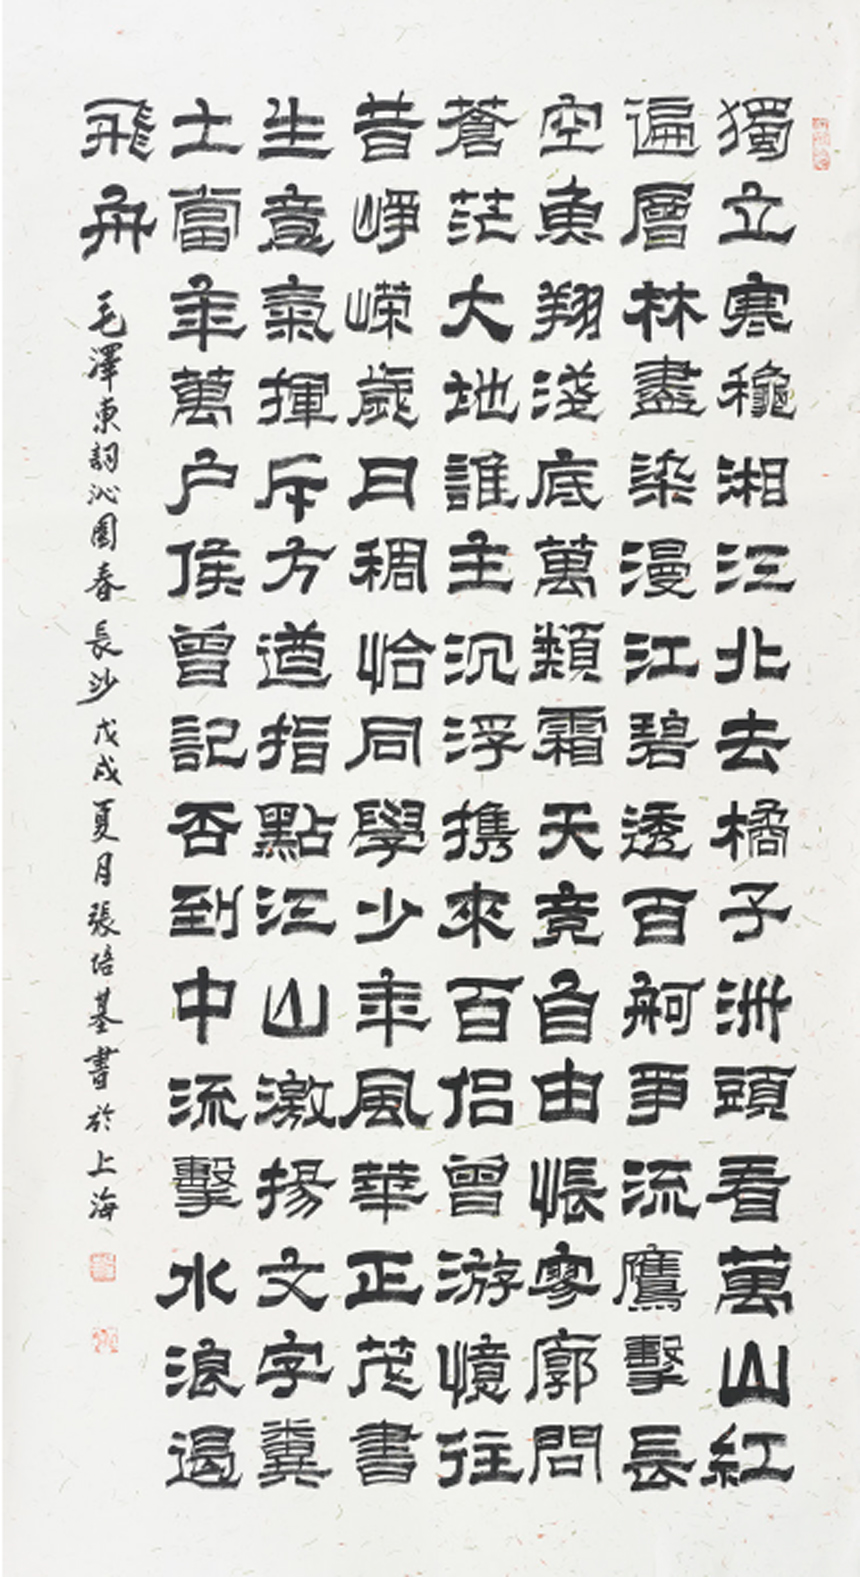 獨立寒穐湘江北去橘子洲頭看萬山紅
遍層林盡染漫江碧透百舸爭流鷹擊長
空魚翔淺底萬類霜天竞自由悵寥廓問
蒼茫大地誰主沉浮携來百侣曾游憶往
昔崢嶸歲月稠恰同學少年風華正茂書
生意氣揮斥方遒指點江山激揚文字糞
土當年萬户侯曾記否到中流擊水浪遏
飛舟 毛澤東詞沁園春 長沙 戊戌夏月張培基書於上海